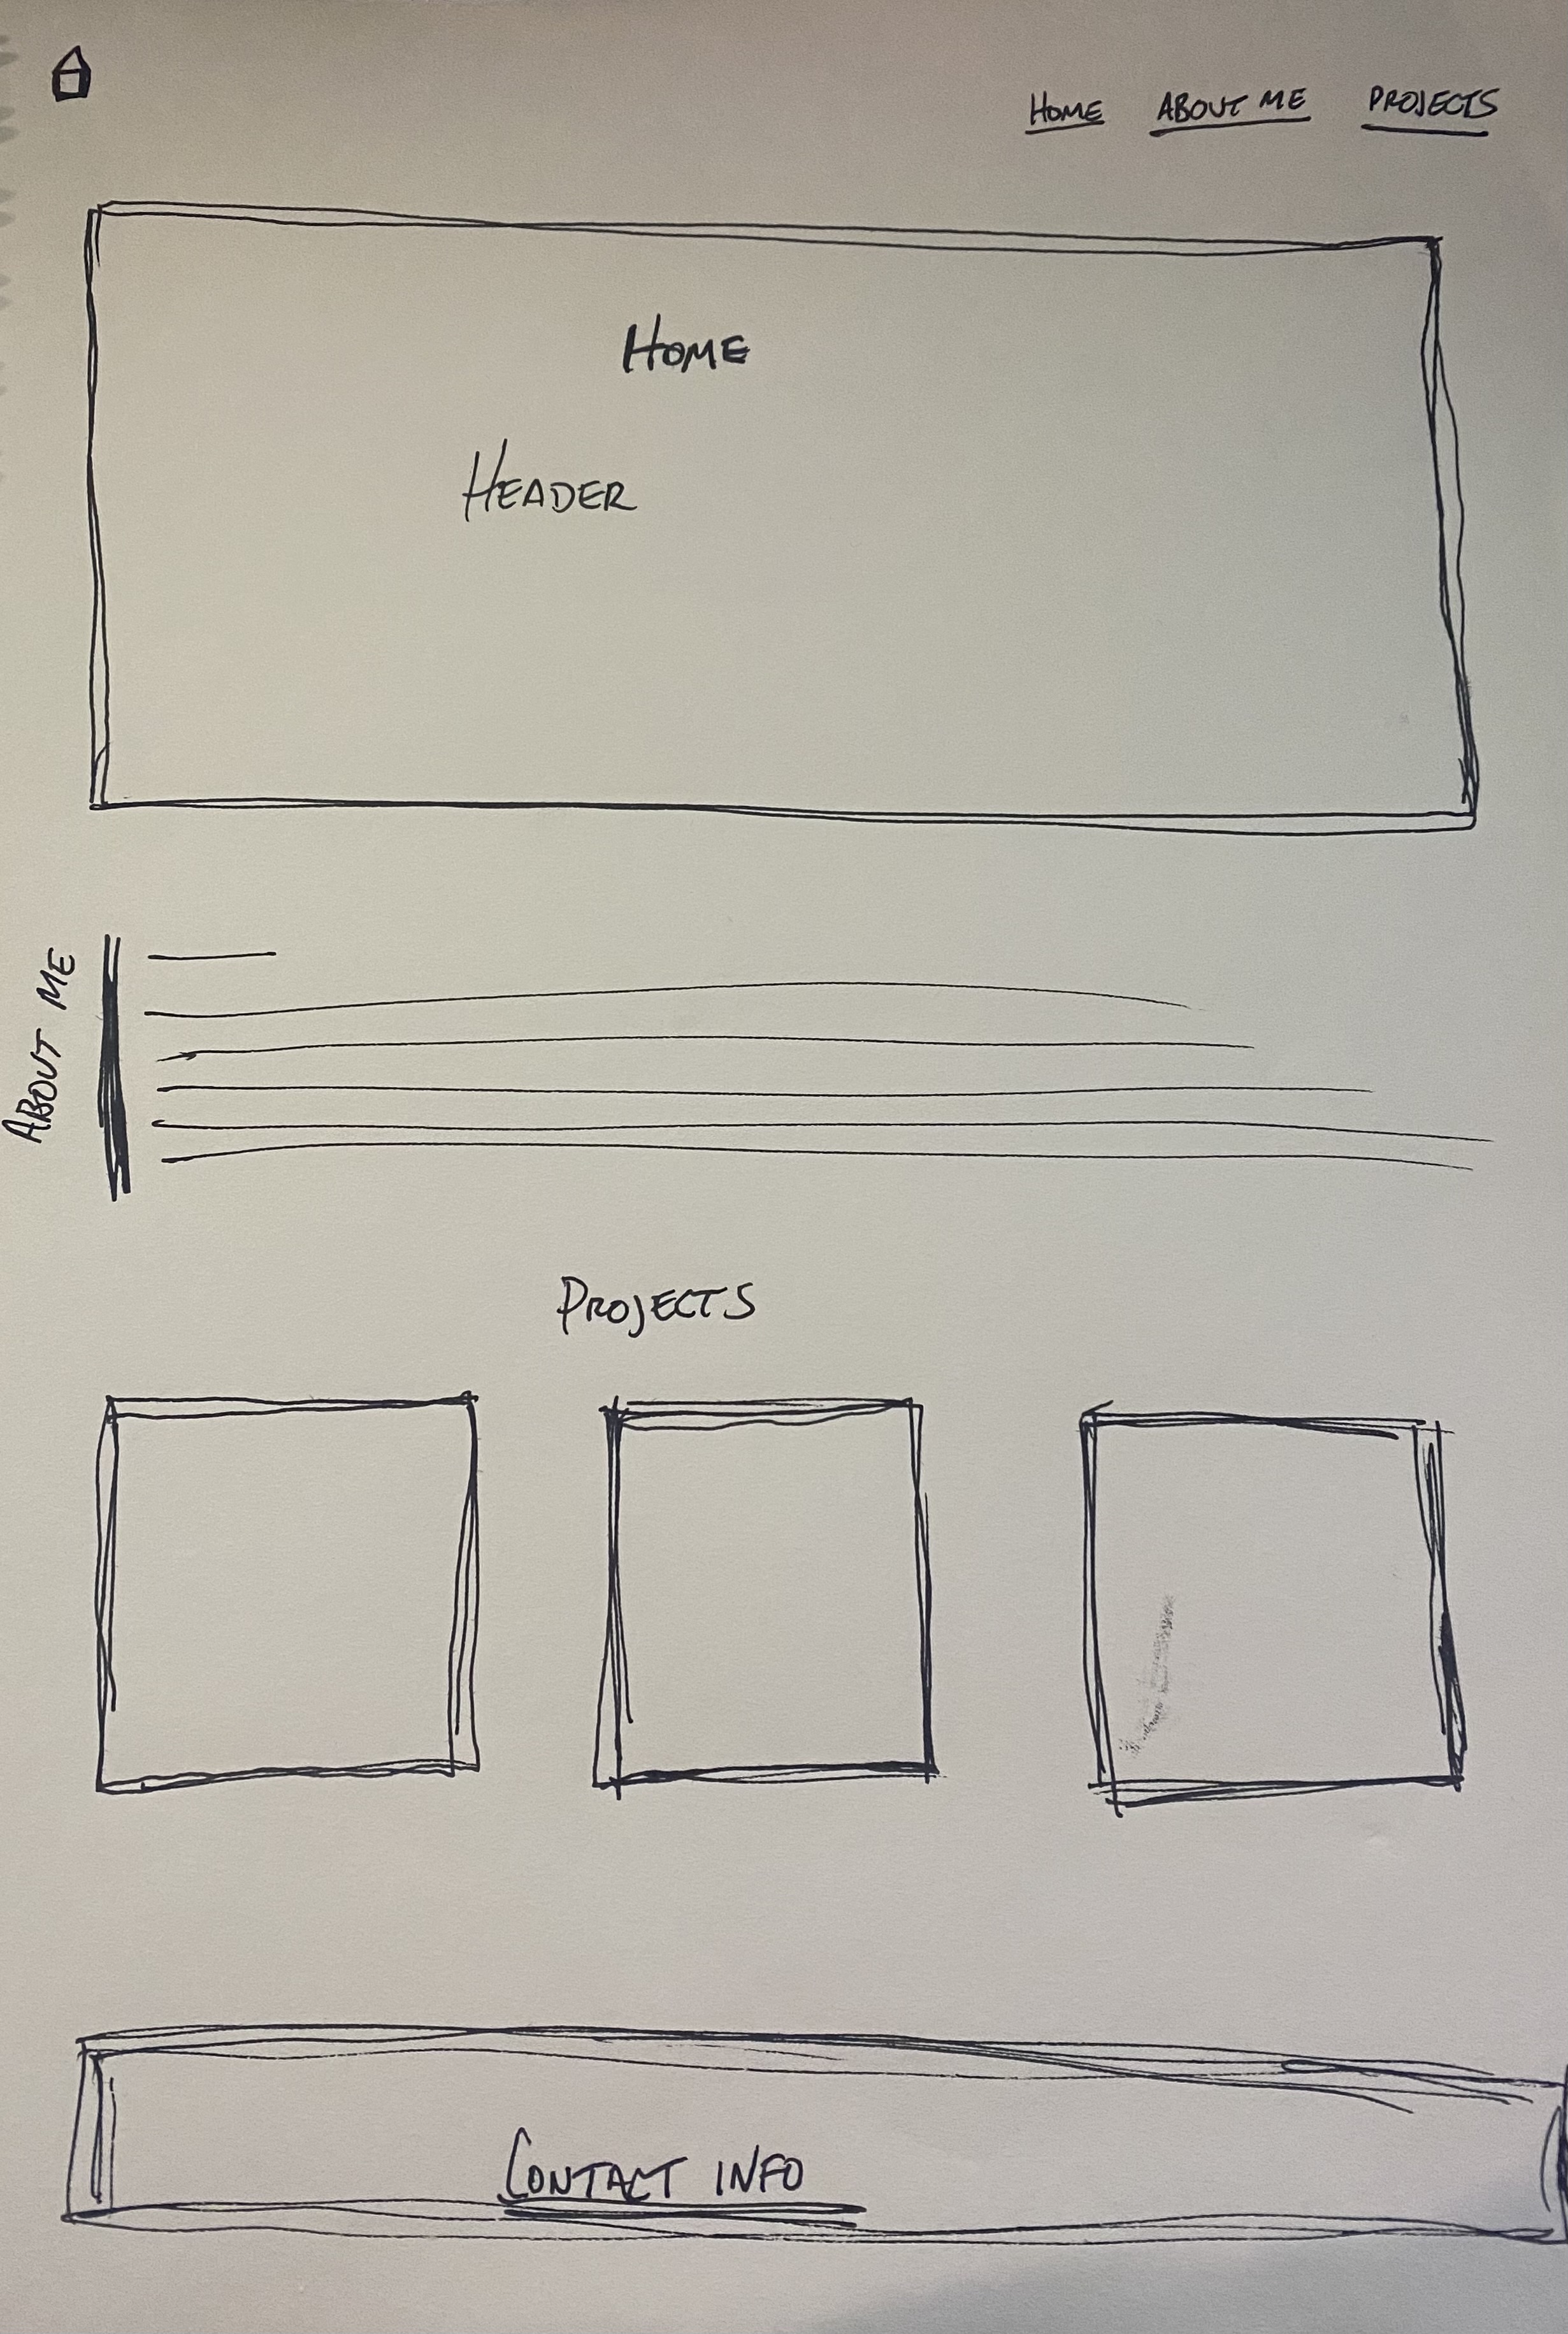 HOME ABOUT ME PROJECTS
HOME
HEADER
ABOUT ME
PROJECTS
CONTACT INFO